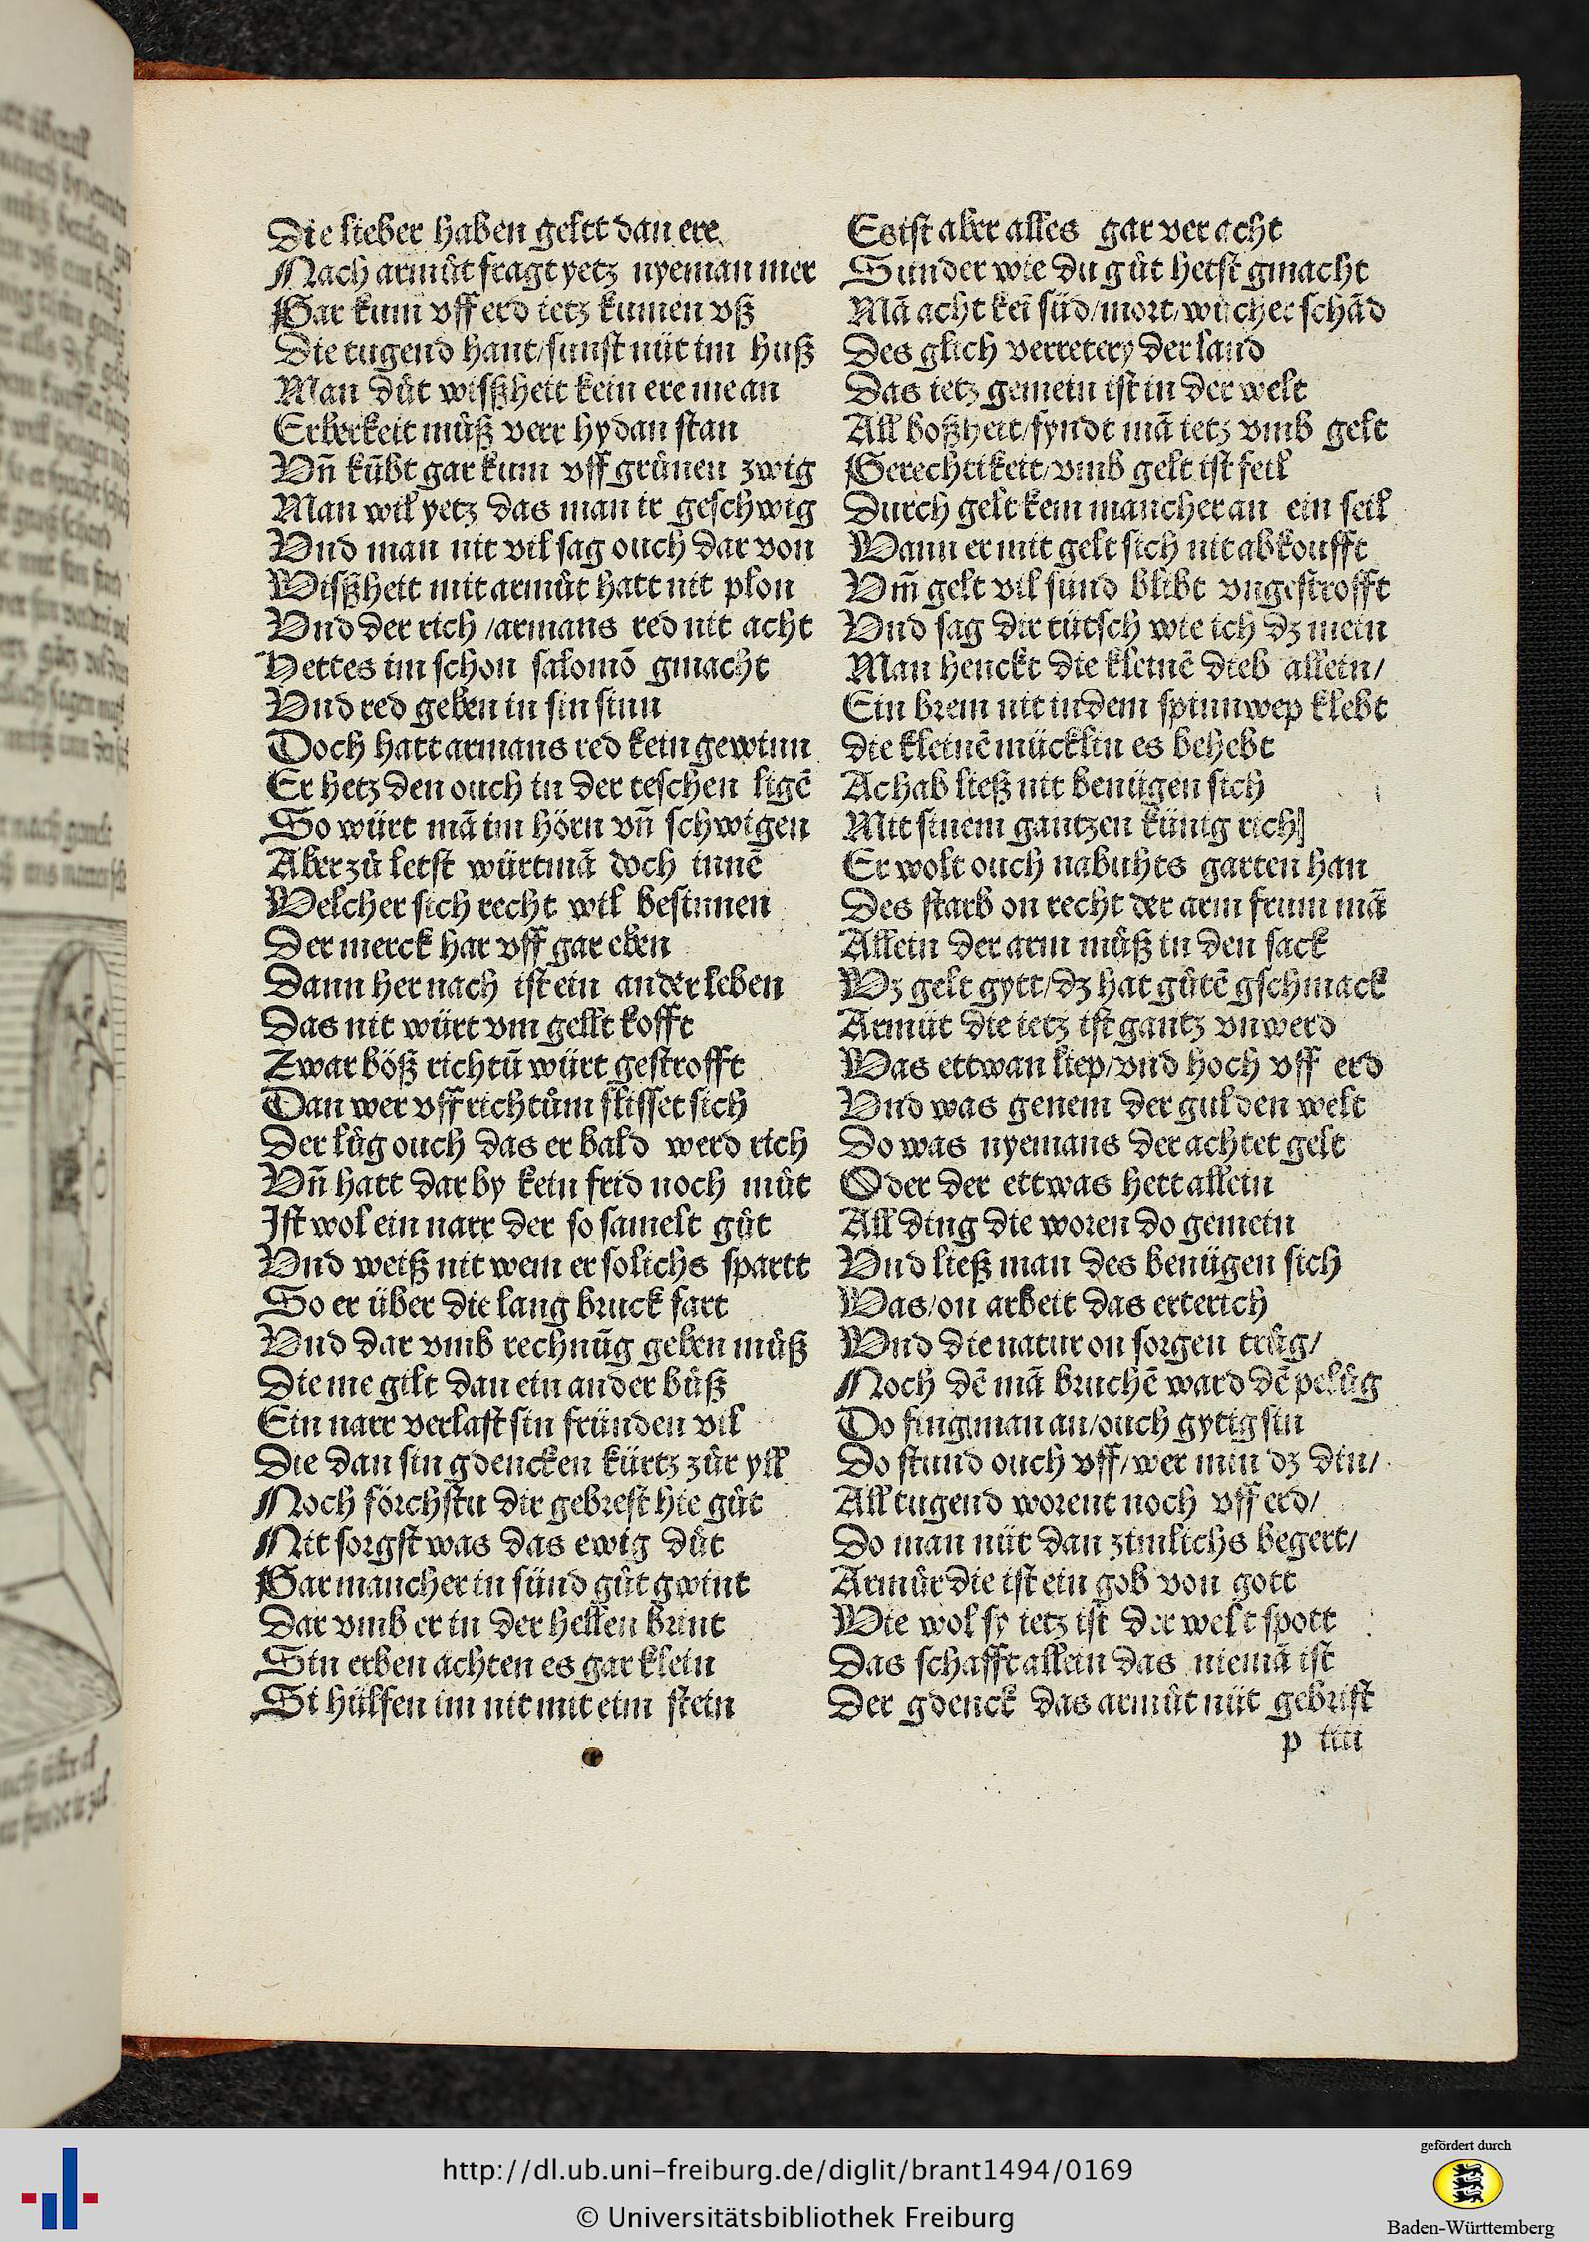 Die lieber haben geltt dan ere
Nach armůt fragt yetz nyeman mer
Gar kum vff erd ietz kumen vß
Die tugend hant/sunst nüt im huß
Man důt wißheit kein ere me an
Erberkeit můß verr hydan stan
Vn̄ kūbt gar kum vff grůnen zwig
Man wil yetz das man ir geschwig
Vnd man nit vil sag ouch dar von
Wißheit mit armůt hatt nit plon
Vnd der rich /armans red nit acht
Hettes im schon salomō gmacht
Vnd red geben in sin sinn
Doch hatt armans red kein gewinn
Er hetz den ouch in der teschen ligē
So würt mā im hörn vn̄ schwigen
Aber zů letst würt mā doch innē
Welcher sich recht wil besinnen
Der merck har vff gar eben
Dann her nach ist ein ander leben
Das nit würt vm gellt kofft
Zwar böß richtū würt gestrofft
Dan wer vff richtům flisset sich
Der lůg ouch das er bald werd rich
Vn̄ hatt dar by kein frid noch můt
Ist wol ein narr der so samelt gůt
Vnd weiß nit wem er solichs spartt
So er über die lang bruck fart
Vnd dar vmb rechnūg geben můß
Die me gilt dan ein ander bůß
Ein narr verlast sin fründen vil
Die dan sin gdencken kürtz zůr yll
Noch förchstu dir gebrest hie gůt
Nit sorgst was das ewig důt
Gar mancher in sünd gůt gwint
Dar vmb er in der hellen brint
Sin erben achten es gar klein
Si hülfen im nit mit eim stein
Es ist aber alles gar ver acht
Sunder wie du gůt hetst gmacht
Mā acht keī süd/mort/wůcher schād
Des glich verretery der land
Das ietz gemein ist in der welt
All boßheit/fyndt mā ietz vmb gelt
Gerechtikeit/vmb gelt ist feil
Durch gelt kem mancher an ein seil
Wann er mit gelt sich nit abkoufft
Vm̄ gelt vil sünd blibt vngestrofft
Vnd sag dir tütsch wie ich dz mein
Man henckt die kleinē dieb allein/
Ein brem nit in dem spinnwep klebt
die kleinē mücklin es behebt
Achab ließ nit benügen sich
Mit sinem gantzen künig rich
Er wolt ouch nabuhts garten han
Des starb on recht der arm frum mā
Allein der arm můß in den sack
Wz gelt gytt/dz hat gůtē gschmack
Armüt die ietz ist gantz vnwerd
Was ettwan liep/vnd hoch vff erd
Vnd was genem der gulden welt
Do was nyemans der achtet gelt
Oder der ettwas hett allein
All ding die woren do gemein
Vnd ließ man des benügen sich
Was/on arbeit das erterich
Wnd die natur on sorgen trůg/
Noch dē mā bruchē ward dē pelůg
Do fing man an/ouch gytig sin
Do stund ouch vff/wer min dz din/
All tugend worent noch vff erd/
Do man nüt dan zimlichs begert/
Armůr die ist ein gob von gott
Wie wol sy ietz ist der welt spott
Das schafft allein das niemā ist
Der gdenck das armůt nüt gebrist
p iiii
http://dl.ub.uni-freiburg.de/diglit/brant1494/0169
© Universitätsbibliothek Freiburg
gefördert durch
Baden-Württemberg